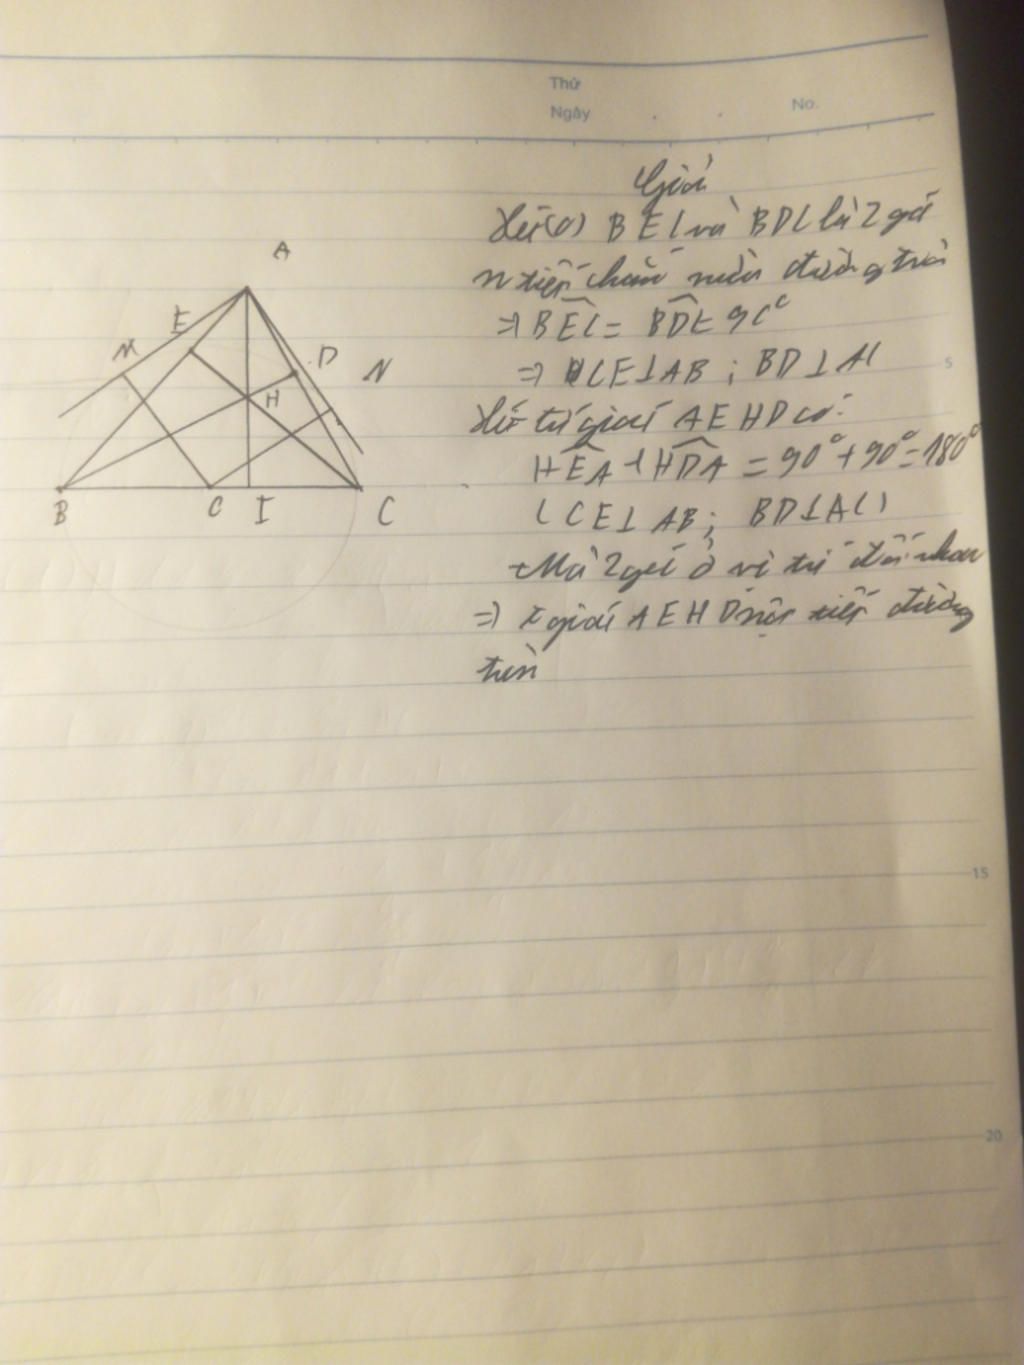 Thứ
Ngày
No.
Giải
Xét (O) BEC và BDC là 2 góc
n tiếp chắn nửa đường tròn
=> BEC = BDC 90°
=> CE⊥AB ; BD⊥AC
Xét tứ giác AEHD có:
HEA + HDA = 90° + 90° = 180°
(CE⊥AB; BD⊥AC)
Mà 2 góc ở vị trí đối nhau
=> t giác AEHD nội tiếp đường
tròn
A
E
M
D
N
H
B
C
I
C
5
15
20